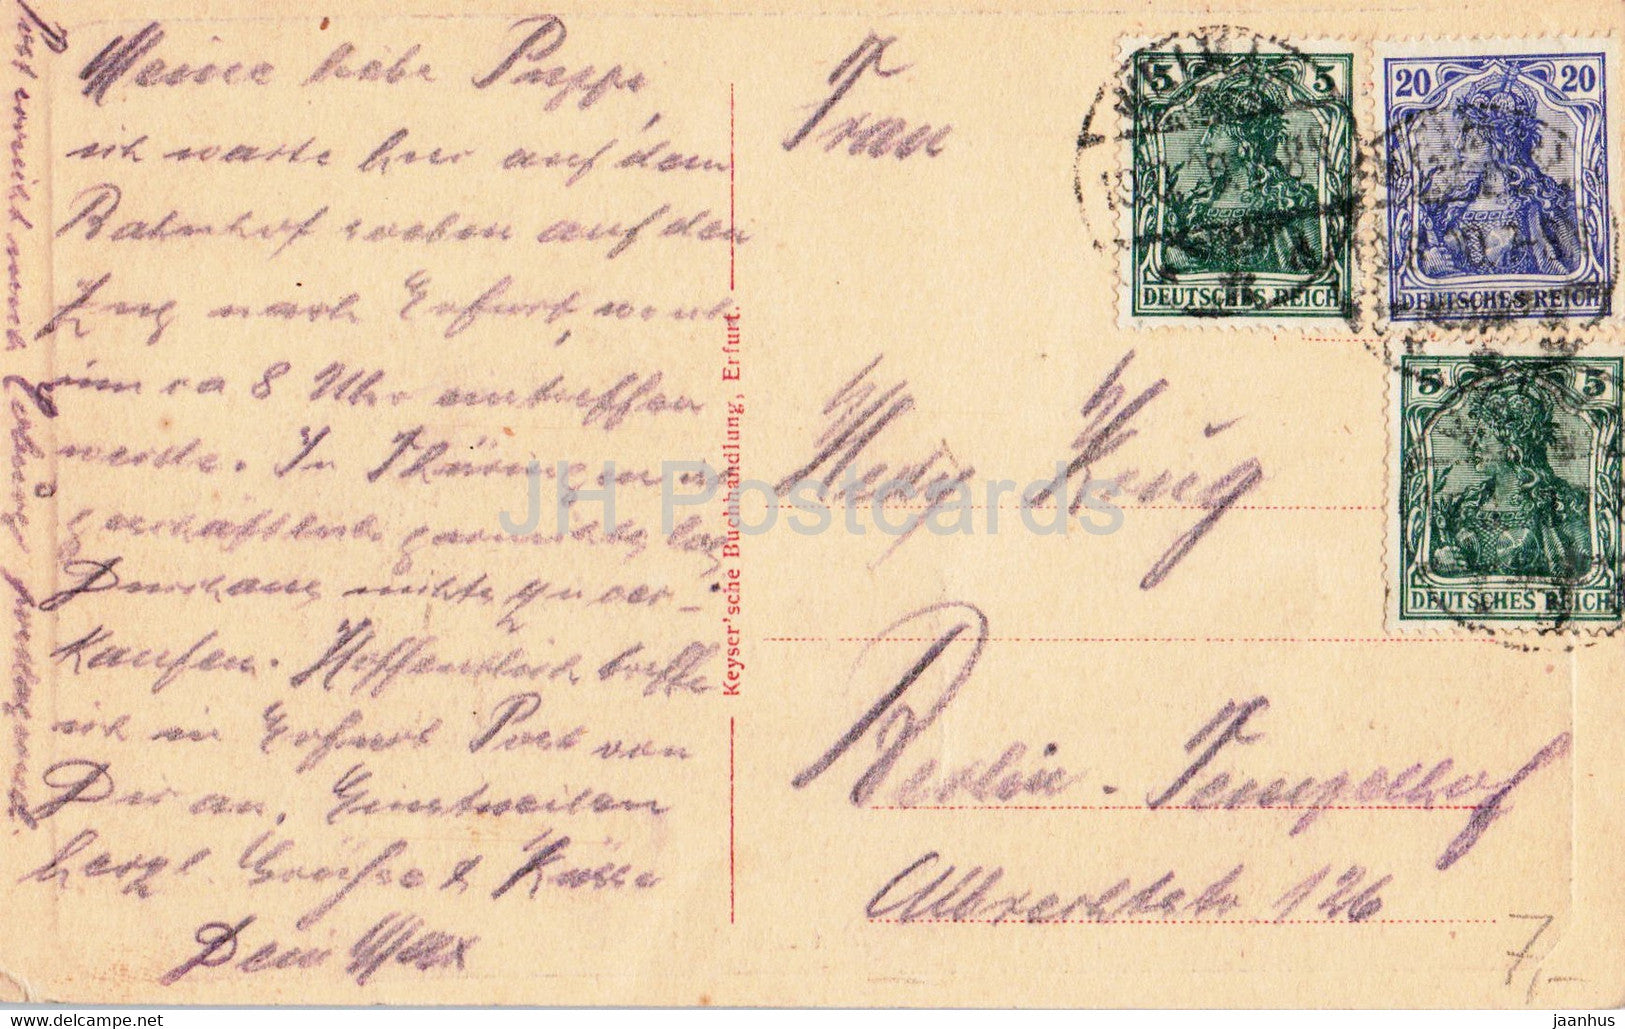 Meine liebe Puppe,
ich warte hier auf dem
Bahnhof soeben auf den
Zug nach Erfurt, wo ich
um ca 8 Uhr eintreffen
werde. In Thüringen ist
geschäftlich garnichts los,
Durchaus nichts zu ver-
kaufen. Hoffentlich treffe
ich in Erfurt Post von
Dir an. Einstweilen
herzl. Grüsse & Küsse
Dein Max
Coburg
Keyser'sche Buchhandlung, Erfurt.
Frau
Hedy König
Berlin-Tempelhof
Albrechtstr 126
5 5
DEUTSCHES REICH
20 20
DEUTSCHES REICH
5 5
DEUTSCHES REICH
7,-
JH Postcards
https://www.delcampe.net
jaanhus